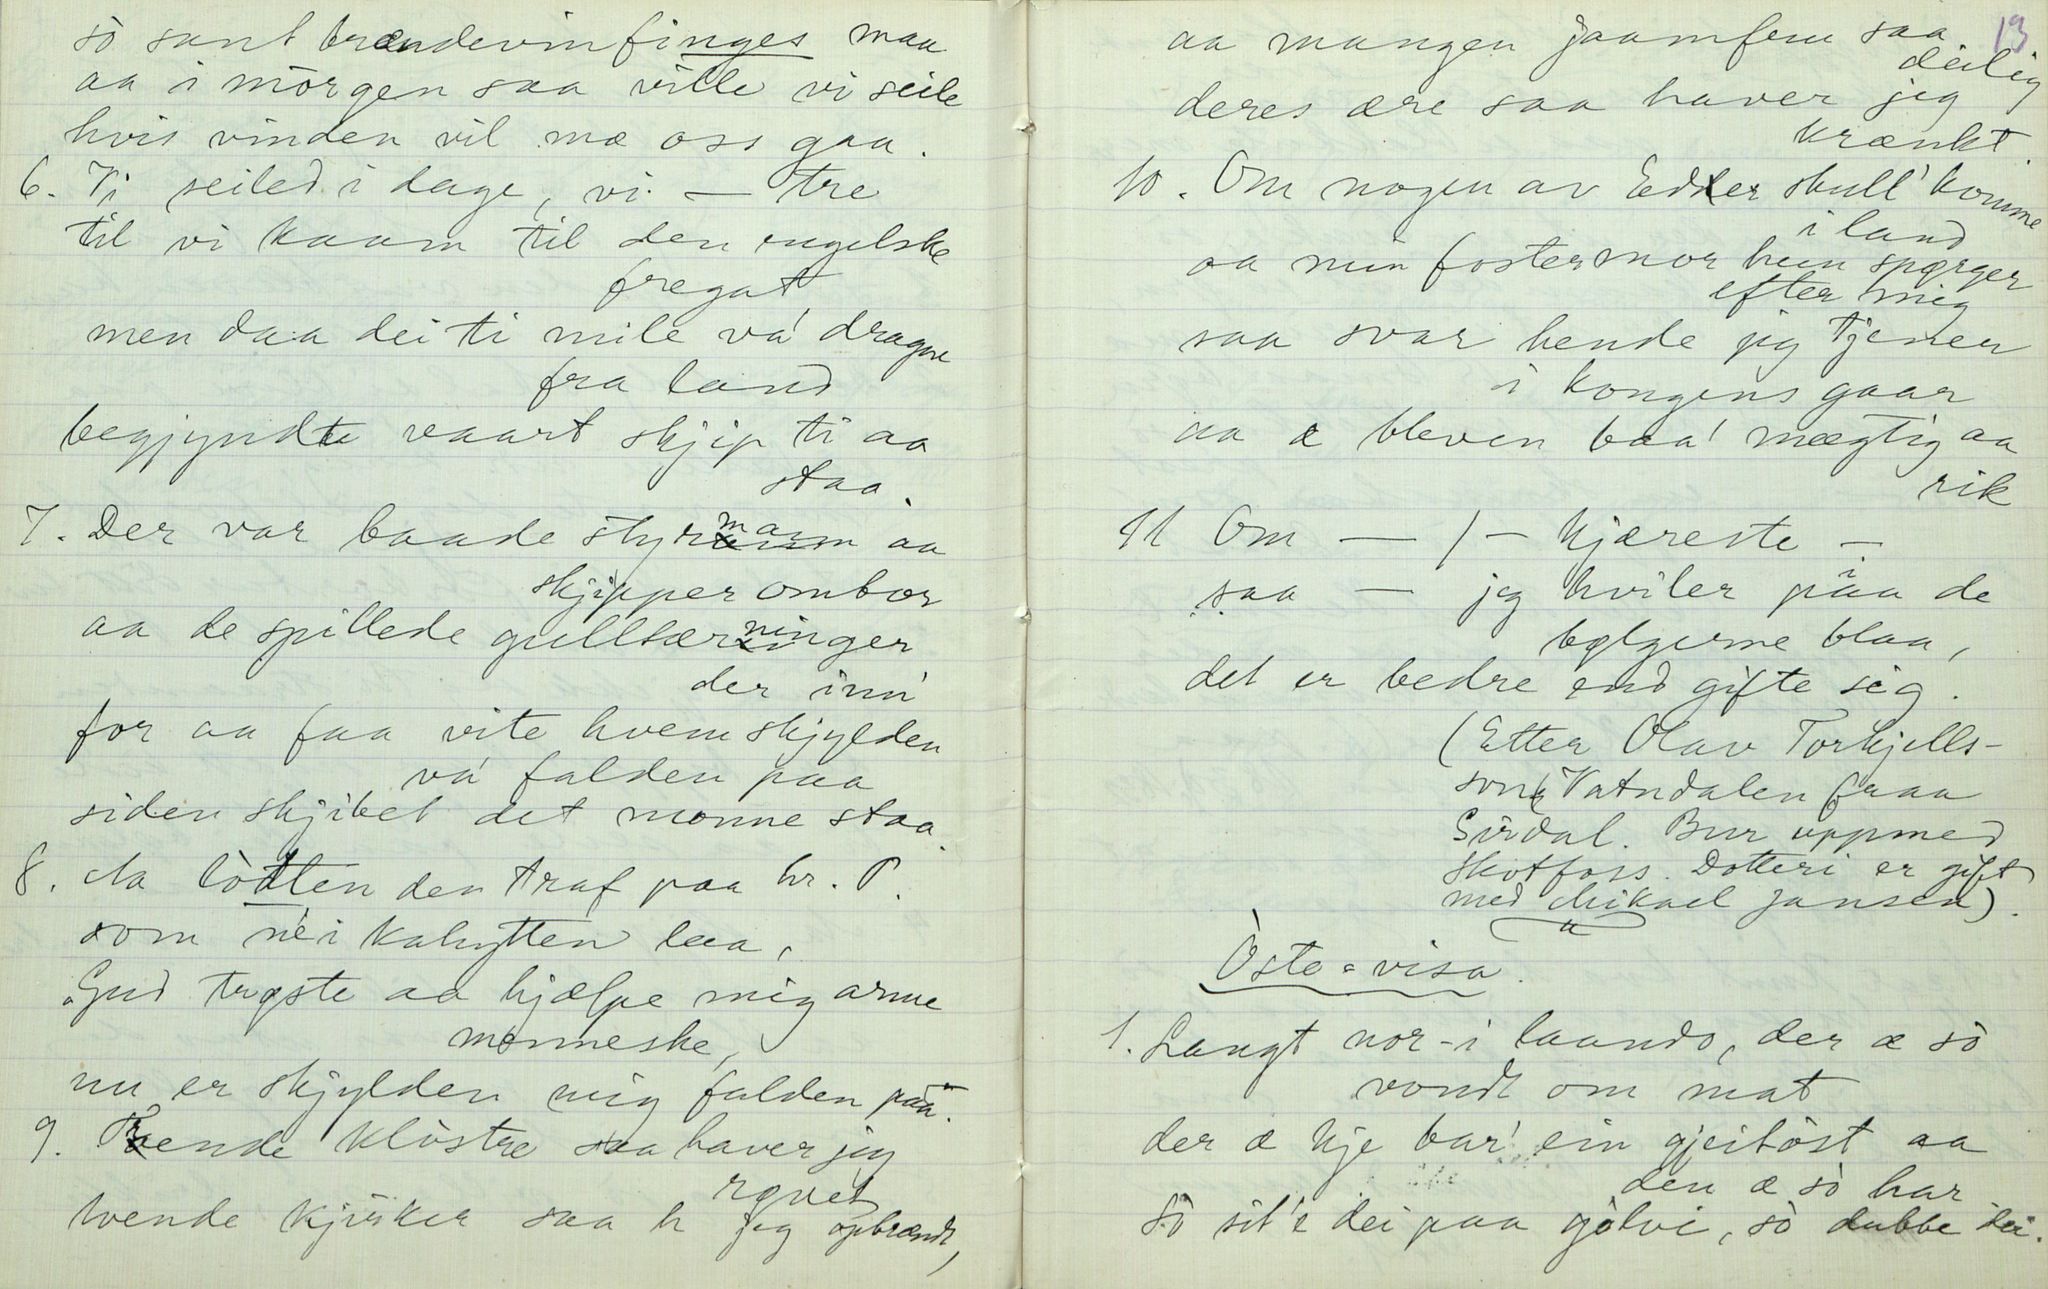 sò sant brændevin finges maa
aa i mòrgen saa ville vi seile
hvis vinden vil mæ oss gaa.
6. Vi seiled i dage, vi — tre
til vi kaam til den engelske
fregat
men daa dei ti mile va' dragne
fra land
begjyndte vaart skjip ti aa
staa.
7. Der var baade styrmann aa
skjipper ombor
aa de spillede gulltærninger
der inn'
for aa faa vite hvem skjylden
va' falden paa
siden skjibet det monne staa.
8. Aa lòdten den traf paa hr. P.
som ne i kahytten laa,
"Gud trøste aa hjælpe mig arme
menneske,
nu er skjylden mig falden paa".
9. Trende klòstre saa haver jeg
røvet
tvende kjirker saa h jeg opbrændt,
13
aa mangen jaamfru saa
deilig
deres ære saa haver jeg
krænkt.
10. Om nogen av Edder skull' komme
i land
aa min fostermor hun spørger
efter mig
saa svar hende jeg tjener
i kongens gaar
aa æ bleven baa' mægtig aa
rik
11 Om — / — kjæreste —
saa — jeg hviler i paa de
bølgerne blaa,
det er bedre end gifte sig.
(Etter Olav Torkjells-
son Vatndalen fraa
Sirdal. Bur uppmed
Skotfoss. Dotteri er gift
med Mikael Jansen).
Òste-visa.
1. Langt nor-i laando, der æ sò
vondt om mat
der æ kje bar' ein gjeitòst aa
den æ sò har
Sò sit'e dei paa gòlvi, sò dubbe dei.